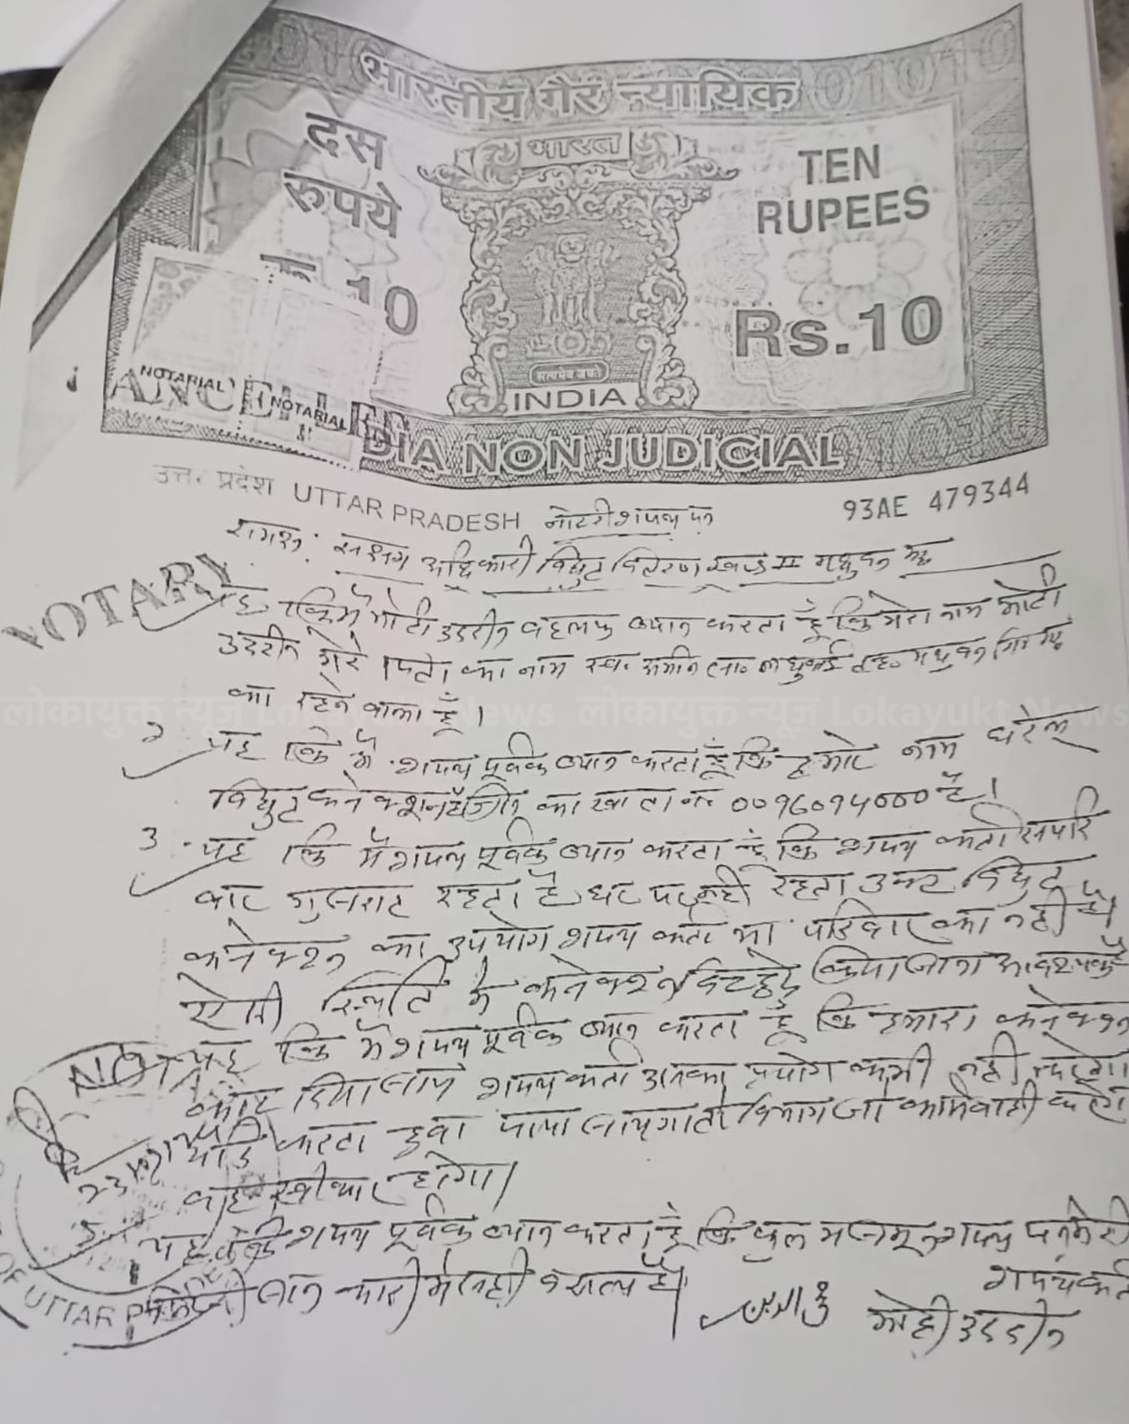 भारतीय गैर न्यायिक
भारत
दस
रुपये
TEN
RUPEES
10
Rs.10
सत्यमेव जयते
INDIA
NOTARIAL
NOTARIAL
DIA NON JUDICIAL
उत्तर प्रदेश UTTAR PRADESH
93AE 479344
नोटरी शपथ पत्र
समक्ष: सक्षम अधिकारी विद्युत वितरण खण्ड II मधुवन मऊ
NOTARY
यह कि मैं मोही उददीन वहलफ ब्यान करता हूँ कि मेरा नाम मोही
उददीन मेरे पिता का नाम स्व. मधुवन
का रहने वाला हूँ।
२ यह कि मैं शपथ पूर्वक ब्यान करता हूँ कि हमारे नाम घरेलू
विद्युत कनेक्शन है जिस का खाता नं. 0096094000 है।
3. यह कि मैं शपथ पूर्वक ब्यान करता हूँ कि शपथ कर्ता सपरि
वार गुजरात रहता है घर पर नही रहता उक्त विद्युत
कनेक्शन का उपयोग शपथ कर्ता या परिवार का नही है।
ऐसी स्थिति में कनेक्शन किया जाना आवश्यक है
यह कि मैं शपथ पूर्वक ब्यान करता हूँ कि हमारा कनेक्शन
काट दिया जाय शपथ कर्ता उसका प्रयोग कभी नही करेगा
यदि करता हुवा पाया जायेगा तो विभाग जो कार्यवाही करेगा
वह स्वीकार होगा।
यह कि शपथ पूर्वक ब्यान करता हूँ कि कुल मजमून शपथ पत्र मेरी
जानकारी में सही व सत्य है।
शपथकर्ता
मोही उददीन
OF UTTAR PR
लोकायुक्त न्यूज़ Lokayukt News लोकायुक्त न्यूज़ Lokayukt News